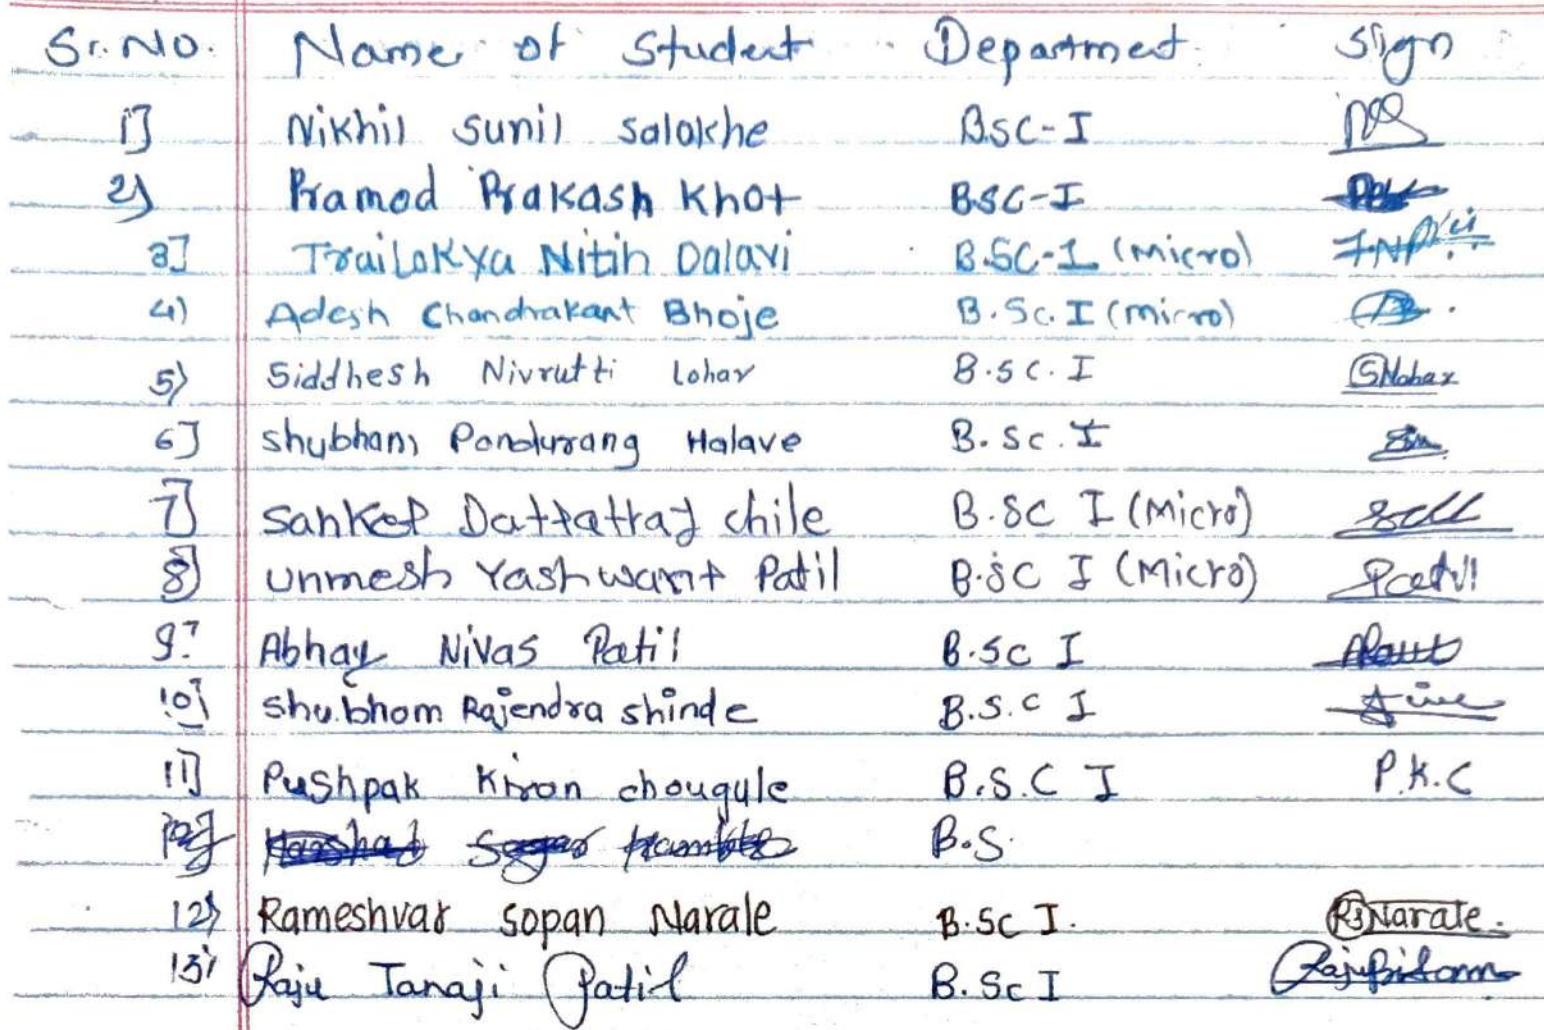 Sr. No. Name of Student Department Sign
1] Nikhil Sunil Salokhe B.SC-I
2) Pramod Prakash Khot B.SC-I
3] Trailokya Nitin Dalavi B.SC-I (Micro)
4) Adesh Chandrakant Bhoje B.Sc. I (micro)
5) Siddhesh Nivrutti Lohar B.SC. I SNlohar
6] Shubham Pandurang Halave B.Sc. I
7] Sanket Dattatray chile B.SC I (Micro)
8] Unmesh Yashwant Patil B.SC I (Micro) Patil
9] Abhay Nivas Patil B.SC I
10] Shubham Rajendra Shinde B.S.C I
11] Pushpak Kiran chougule B.S.C I P.K.C
B.S.
12) Rameshvar Sopan Narale B.SC I. RS Narale.
13) Raju Tanaji Patil B.Sc I